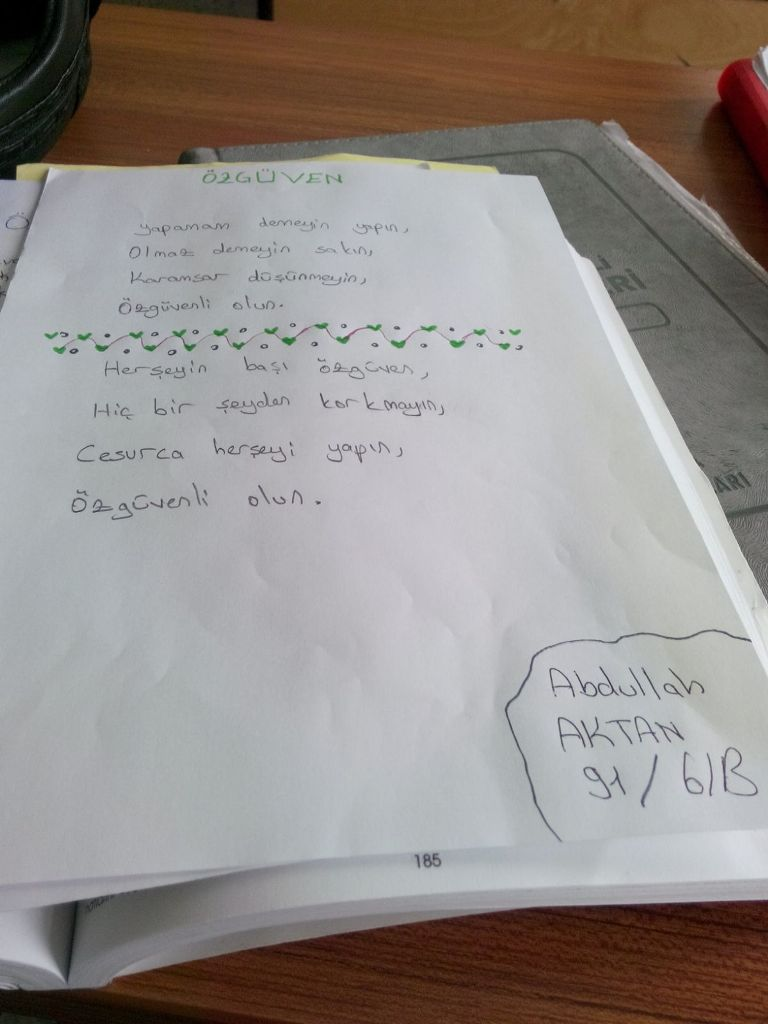 ÖZGÜVEN
yapamam demeyin yapın,
Olmaz demeyin sakın,
Karamsar düşünmeyin,
Özgüvenli olun.
Herşeyin başı özgüven,
Hiç bir şeyden korkmayın,
Cesurca herşeyi yapın,
Özgüvenli olun.
Abdullah
AKTAN
91 / 6/B
185